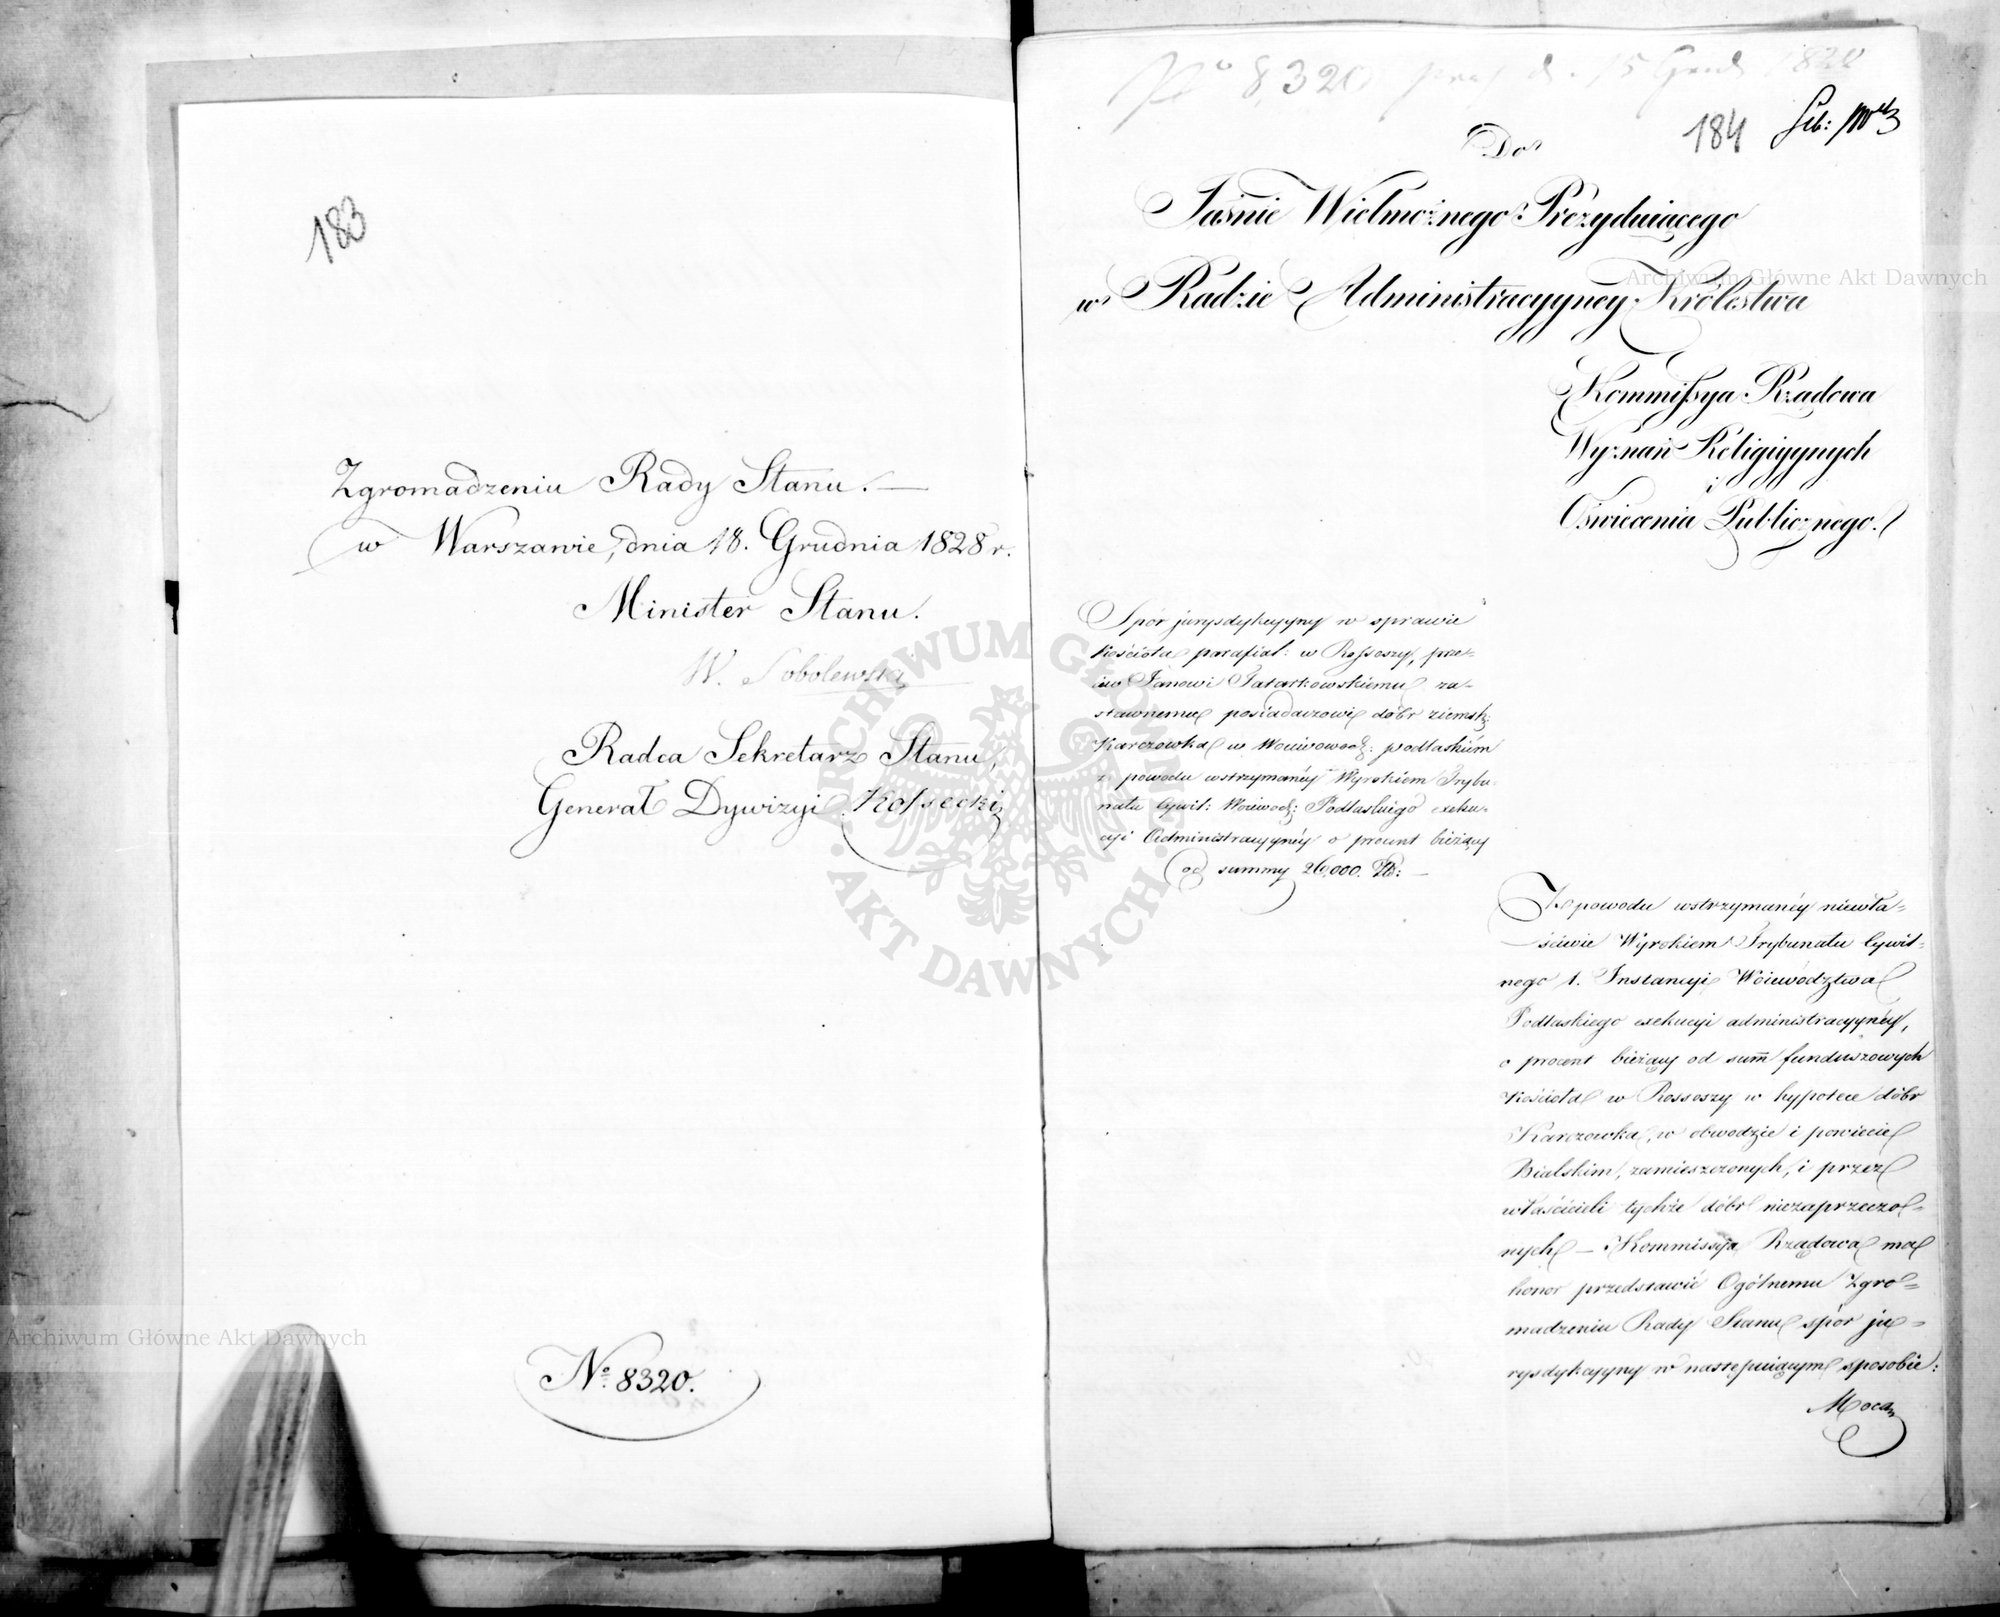 183
Zgromadzeniu Rady Stanu. —
w Warszawie, dnia 18. Grudnia 1828 r.
Minister Stanu.
W. Sobolewski
Radca Sekretarz Stanu,
Generał Dywizyi Kossecki
No. 8320.
No 8,320 d. 15 Grud 1828
184
Do
Jaśnie Wielmożnego Prezyduiącego
w Radzie Administracyyney Królestwa
Kommissya Rządowa
Wyznań Religiyynych
i
Oświecenia Publicznego.
Spór jurysdykcyyny w sprawie
Kościoła parafial: w Rossoszy, prze-
ciw Janowi Tatarkowskiemu za-
stawnemu posiadaczowi dóbr ziemsk:
Karczowka w Woiewodz: podlaskiém
z powodu wstrzymanéy Wyrokiem Trybu-
nału Cywil: Woiewodz: Podlaskiego exeku-
cyi Administracyynéy o procent bieżący
od summy 26,000. Złt: —
Z powodu wstrzymanéy niewła-
ściwie Wyrokiem Trybunału Cywil-
nego 1. Instancyi Woiewództwa
Podlaskiego exekucyi administracyynéy,
o procent bieżący od summ funduszowych
Kościoła w Rossoszy w hypotece dóbr
Karczowka, w obwodzie i powiecie
Bialskim, zamieszczonych, i przez
właścicieli tychże dóbr niezaprzeczo-
nych — Kommissya Rządowa ma
honor przedstawić Ogólnemu Zgro-
madzeniu Rady Stanu spór ju-
rysdykcyyny w następuiącym sposobie:
Mocą
Archiwum Główne Akt Dawnych
Archiwum Główne Akt Dawnych
ARCHIWUM GŁÓWNE
AKT DAWNYCH